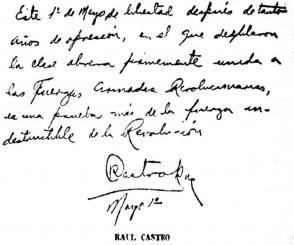 Este 1º de Mayo de libertad después de tantos
años de opresión, en el que desfilaron
la clase obrera firmemente unida a
las Fuerzas Armadas Revolucionarias,
es una prueba más de la fuerza in-
destructible de la Revolución
RCastro Ruz
Mayo 1º
RAUL CASTRO